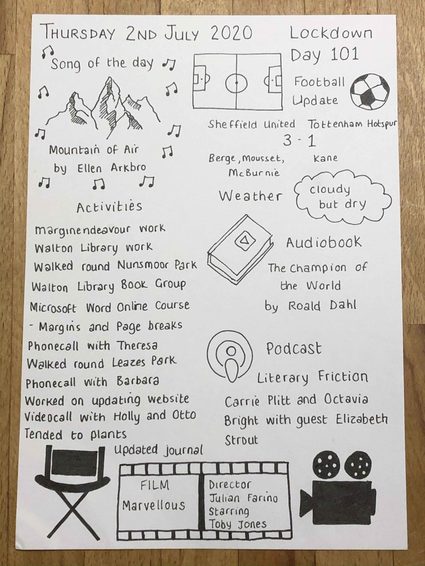 Thursday 2nd July 2020
Lockdown
Day 101
Song of the day
Mountain of Air
by Ellen Arkbro
Football
Update
Sheffield United Tottenham Hotspur
3 - 1
Berge, Mousset, Kane
McBurnie
Weather
cloudy
but dry
Activities
Marginendeavour work
Walton Library work
Walked round Nunsmoor Park
Walton Library Book Group
Microsoft Word Online Course
- Margins and Page breaks
Phonecall with Theresa
Walked round Leazes Park
Phonecall with Barbara
Worked on updating website
Videocall with Holly and Otto
Tended to plants
Updated journal
Audiobook
The Champion of
the World
by Roald Dahl
Podcast
Literary Friction
Carrie Plitt and Octavia
Bright with guest Elizabeth
Strout
FILM
Marvellous
Director
Julian Farino
Starring
Toby Jones